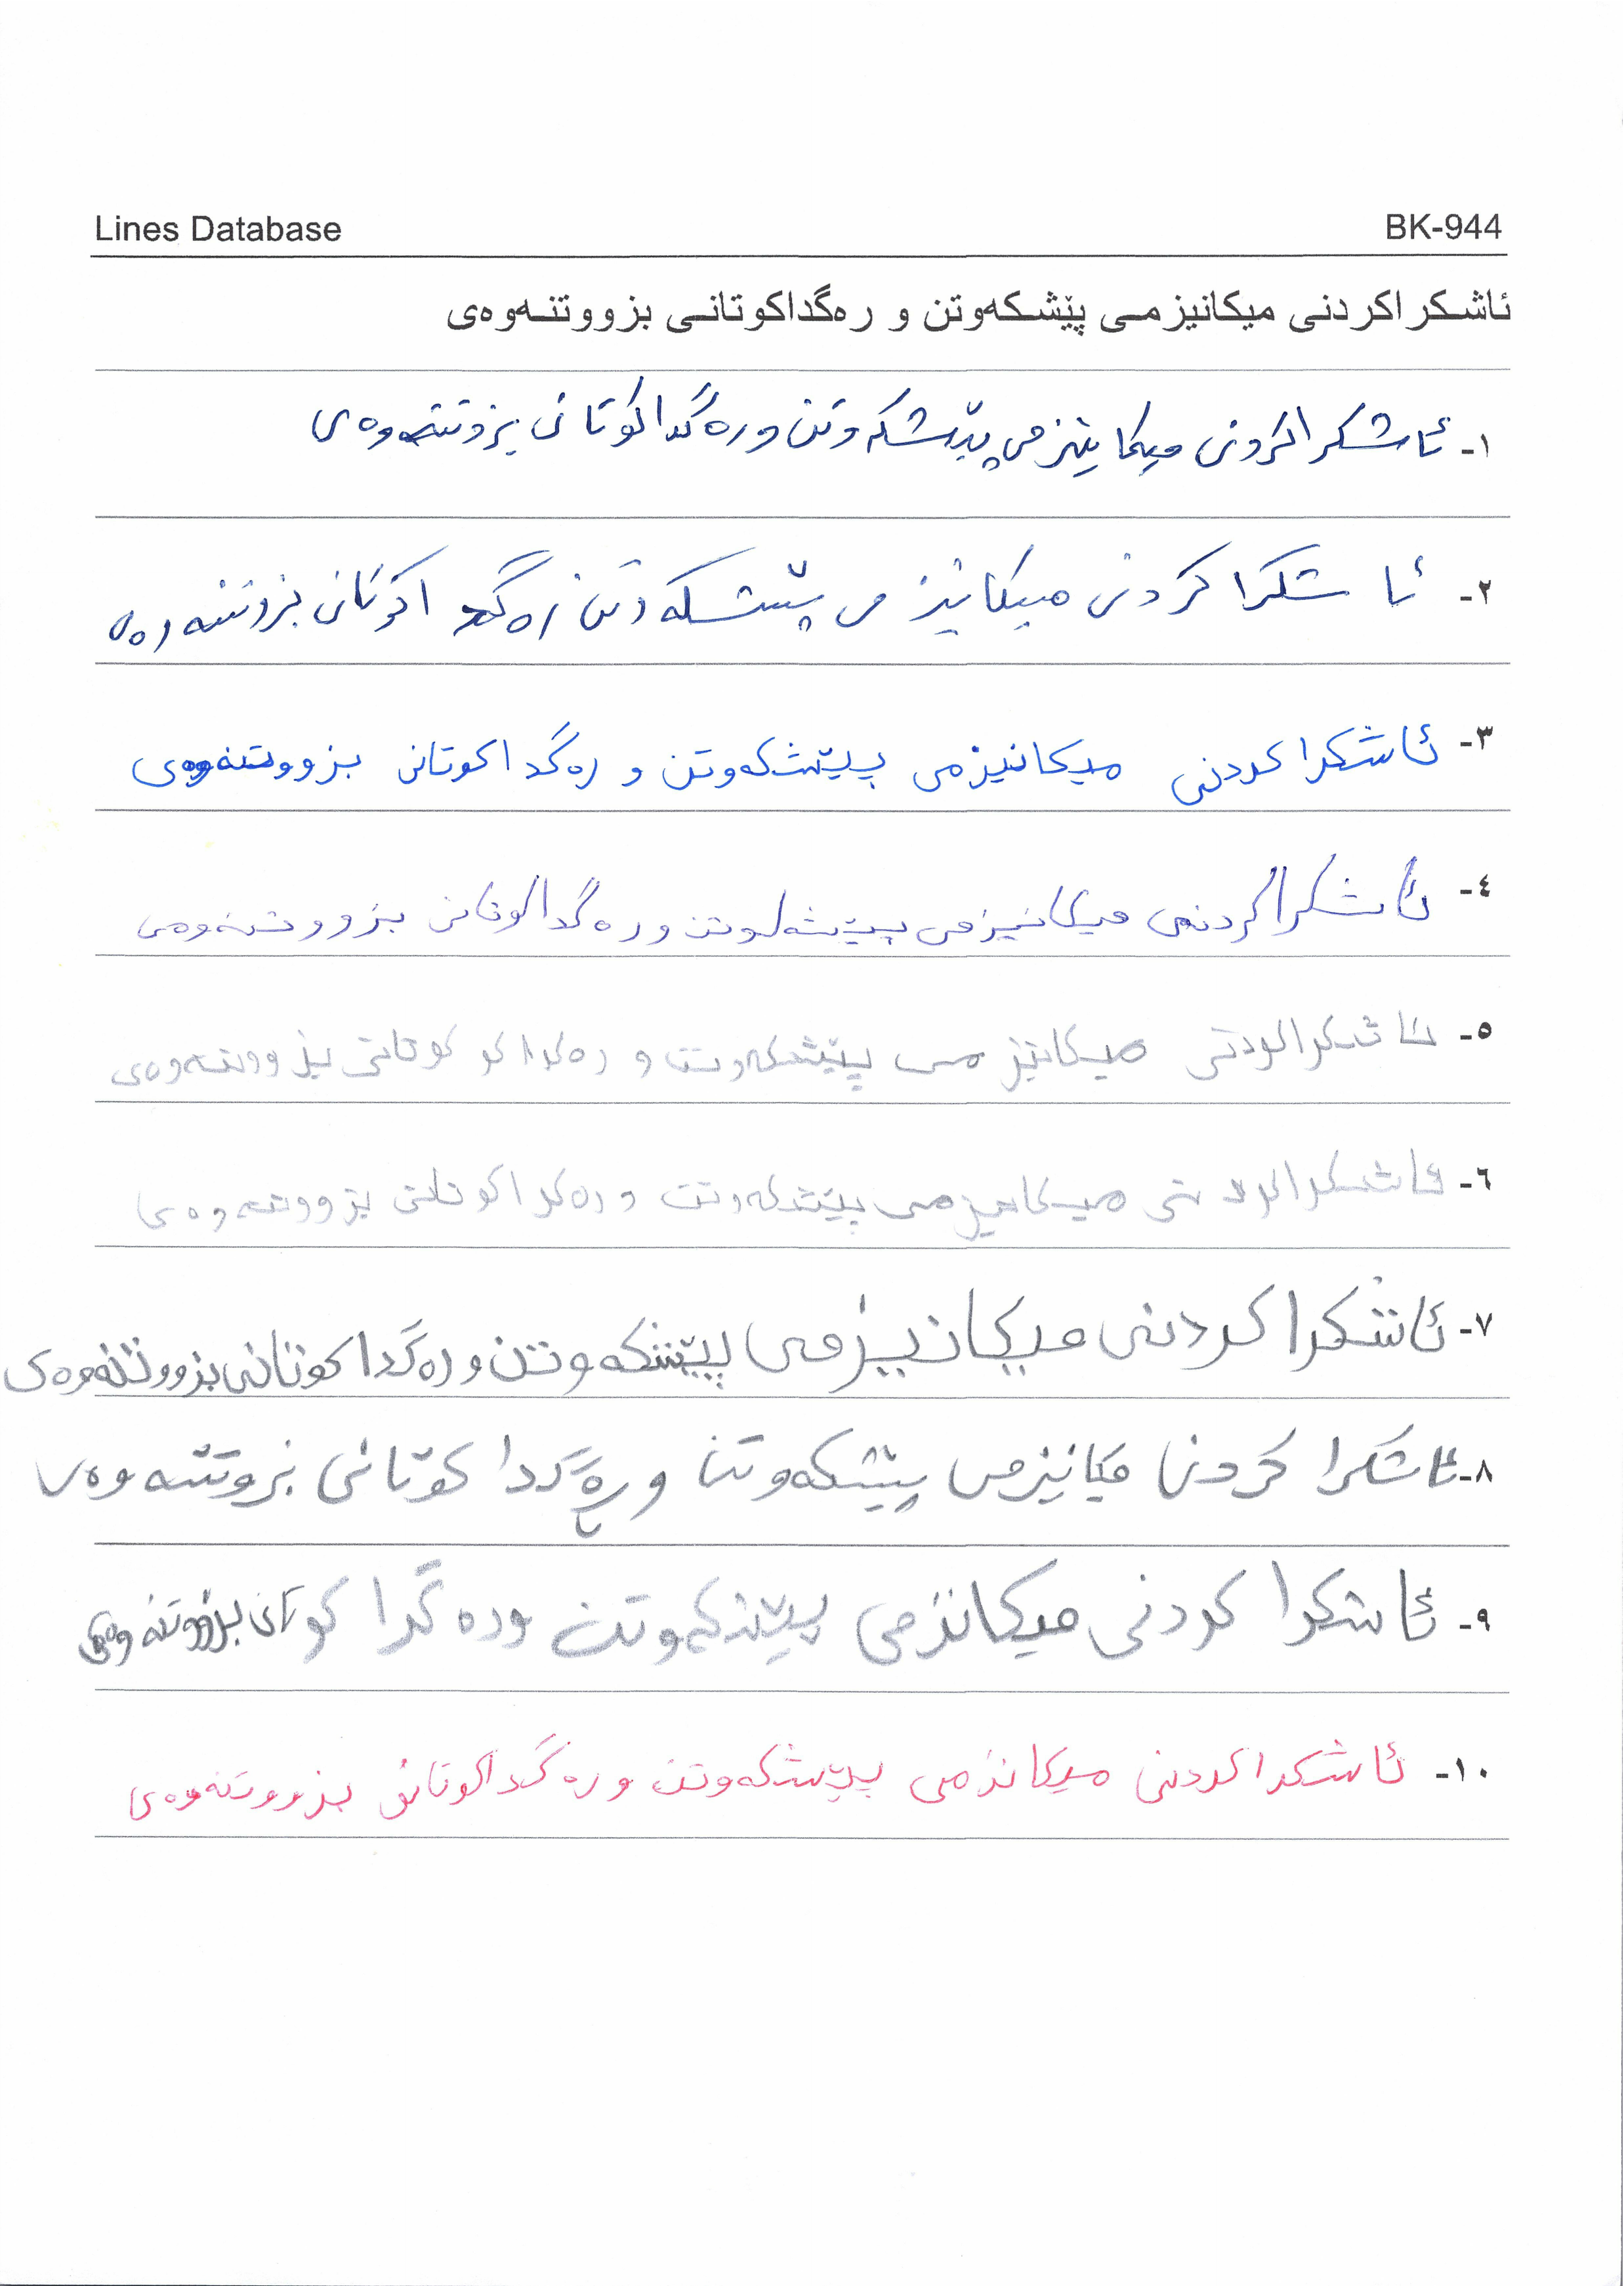 Lines Database BK-944
ئاشکراکردنی میکانیزمی پێشکەوتن و رەگداکوتانی بزووتنەوەی
١- ئاشکراکردنی میکانیزمی پێشکەوتن و رەگداکوتانی بزوتنەوەی
٢- ئاشکراکردنی میکانیزمی پێشکەوتن رەگداکوتانی بزوتنەوەی
٣- ئاشکراکردنی میکانیزمی پێشکەوتن و رەگداکوتانی بزووتنەوەی
٤- ئاشکراکردنی میکانیزمی پێشکەوتن و رەگداکوتانی بزووتنەوەی
٥- ئاشکراکردنی میکانیزمی پێشکەوتن و رەگداکو کوتانی بزووتنەوەی
٦- ئاشکراکردنی میکانیزمی پێشکەوتن و رەگداکوتانی بزووتنەوەی
٧- ئاشکراکردنی میکانیزمی پێشکەوتن و رەگداکوتانی بزووتنەوەی
٨- ئاشکرا کردنی میکانیزمی پێشکەوتن و رەگدا کوتانی بزوتنەوەی
٩- ئاشکرا کردنی میکانزمی پێشکەوتن ورەگدا کوتانی بزووتنەوەی
١٠- ئاشکراکردنی میکانزمی پێشکەوتن و رەگداکوتانی بزووتنەوەی